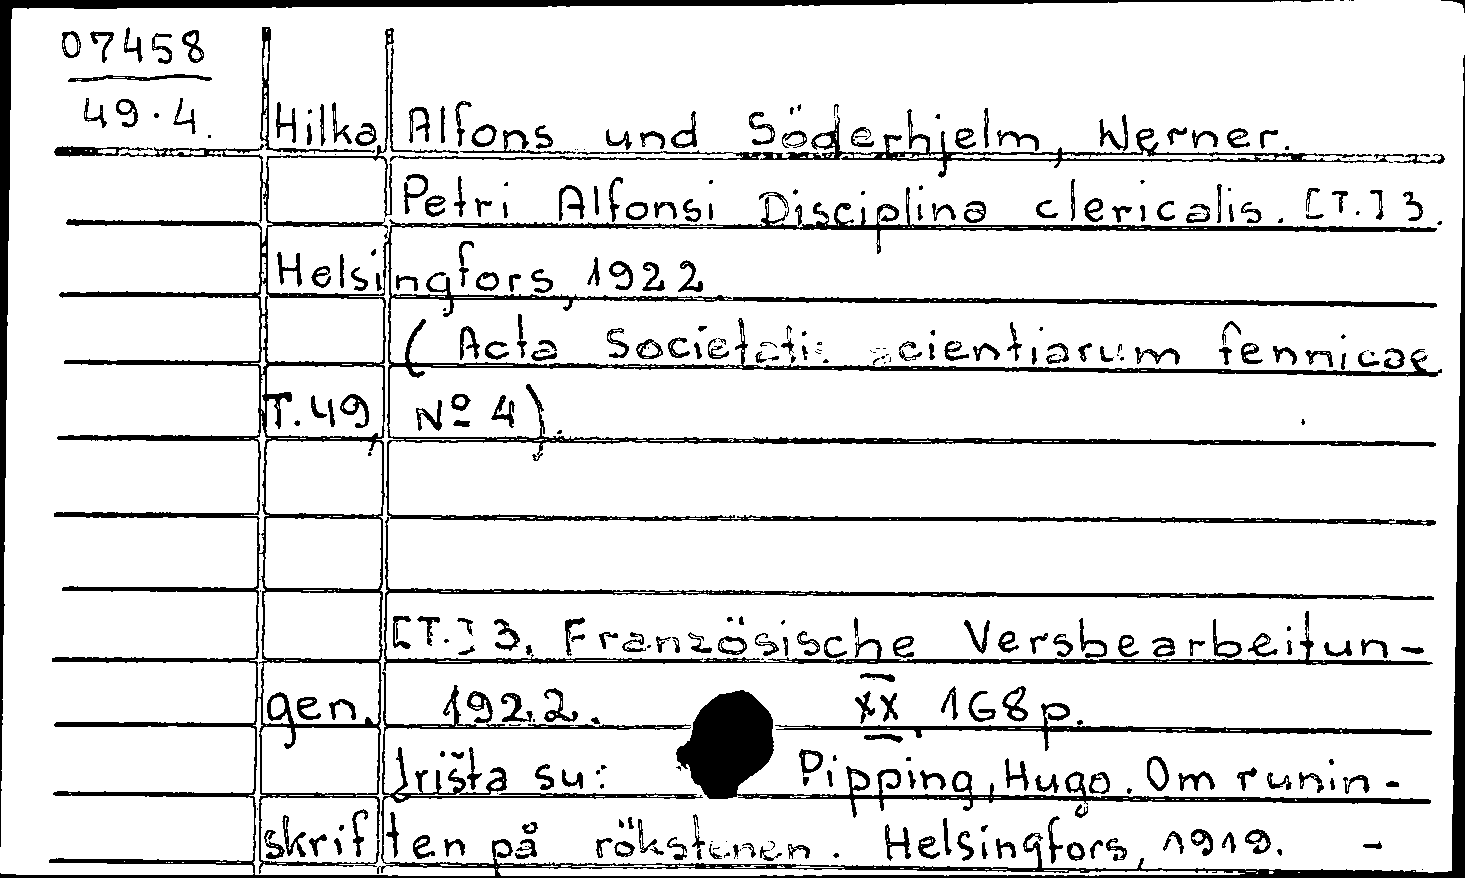 07458
49.4.
Hilka, Alfons und Söderhjelm, Werner.
Petri Alfonsi Disciplina clericalis. [T.] 3.
Helsingfors, 1922
(Acta Societatis scientiarum fennicae
T.49, Nº 4).
[T.] 3. Französische Versbearbeitun-
gen. 1922. XX, 168p.
Įrišta su: Pipping, Hugo. Om runin-
skriften på rökstenen. Helsingfors, 1919. -